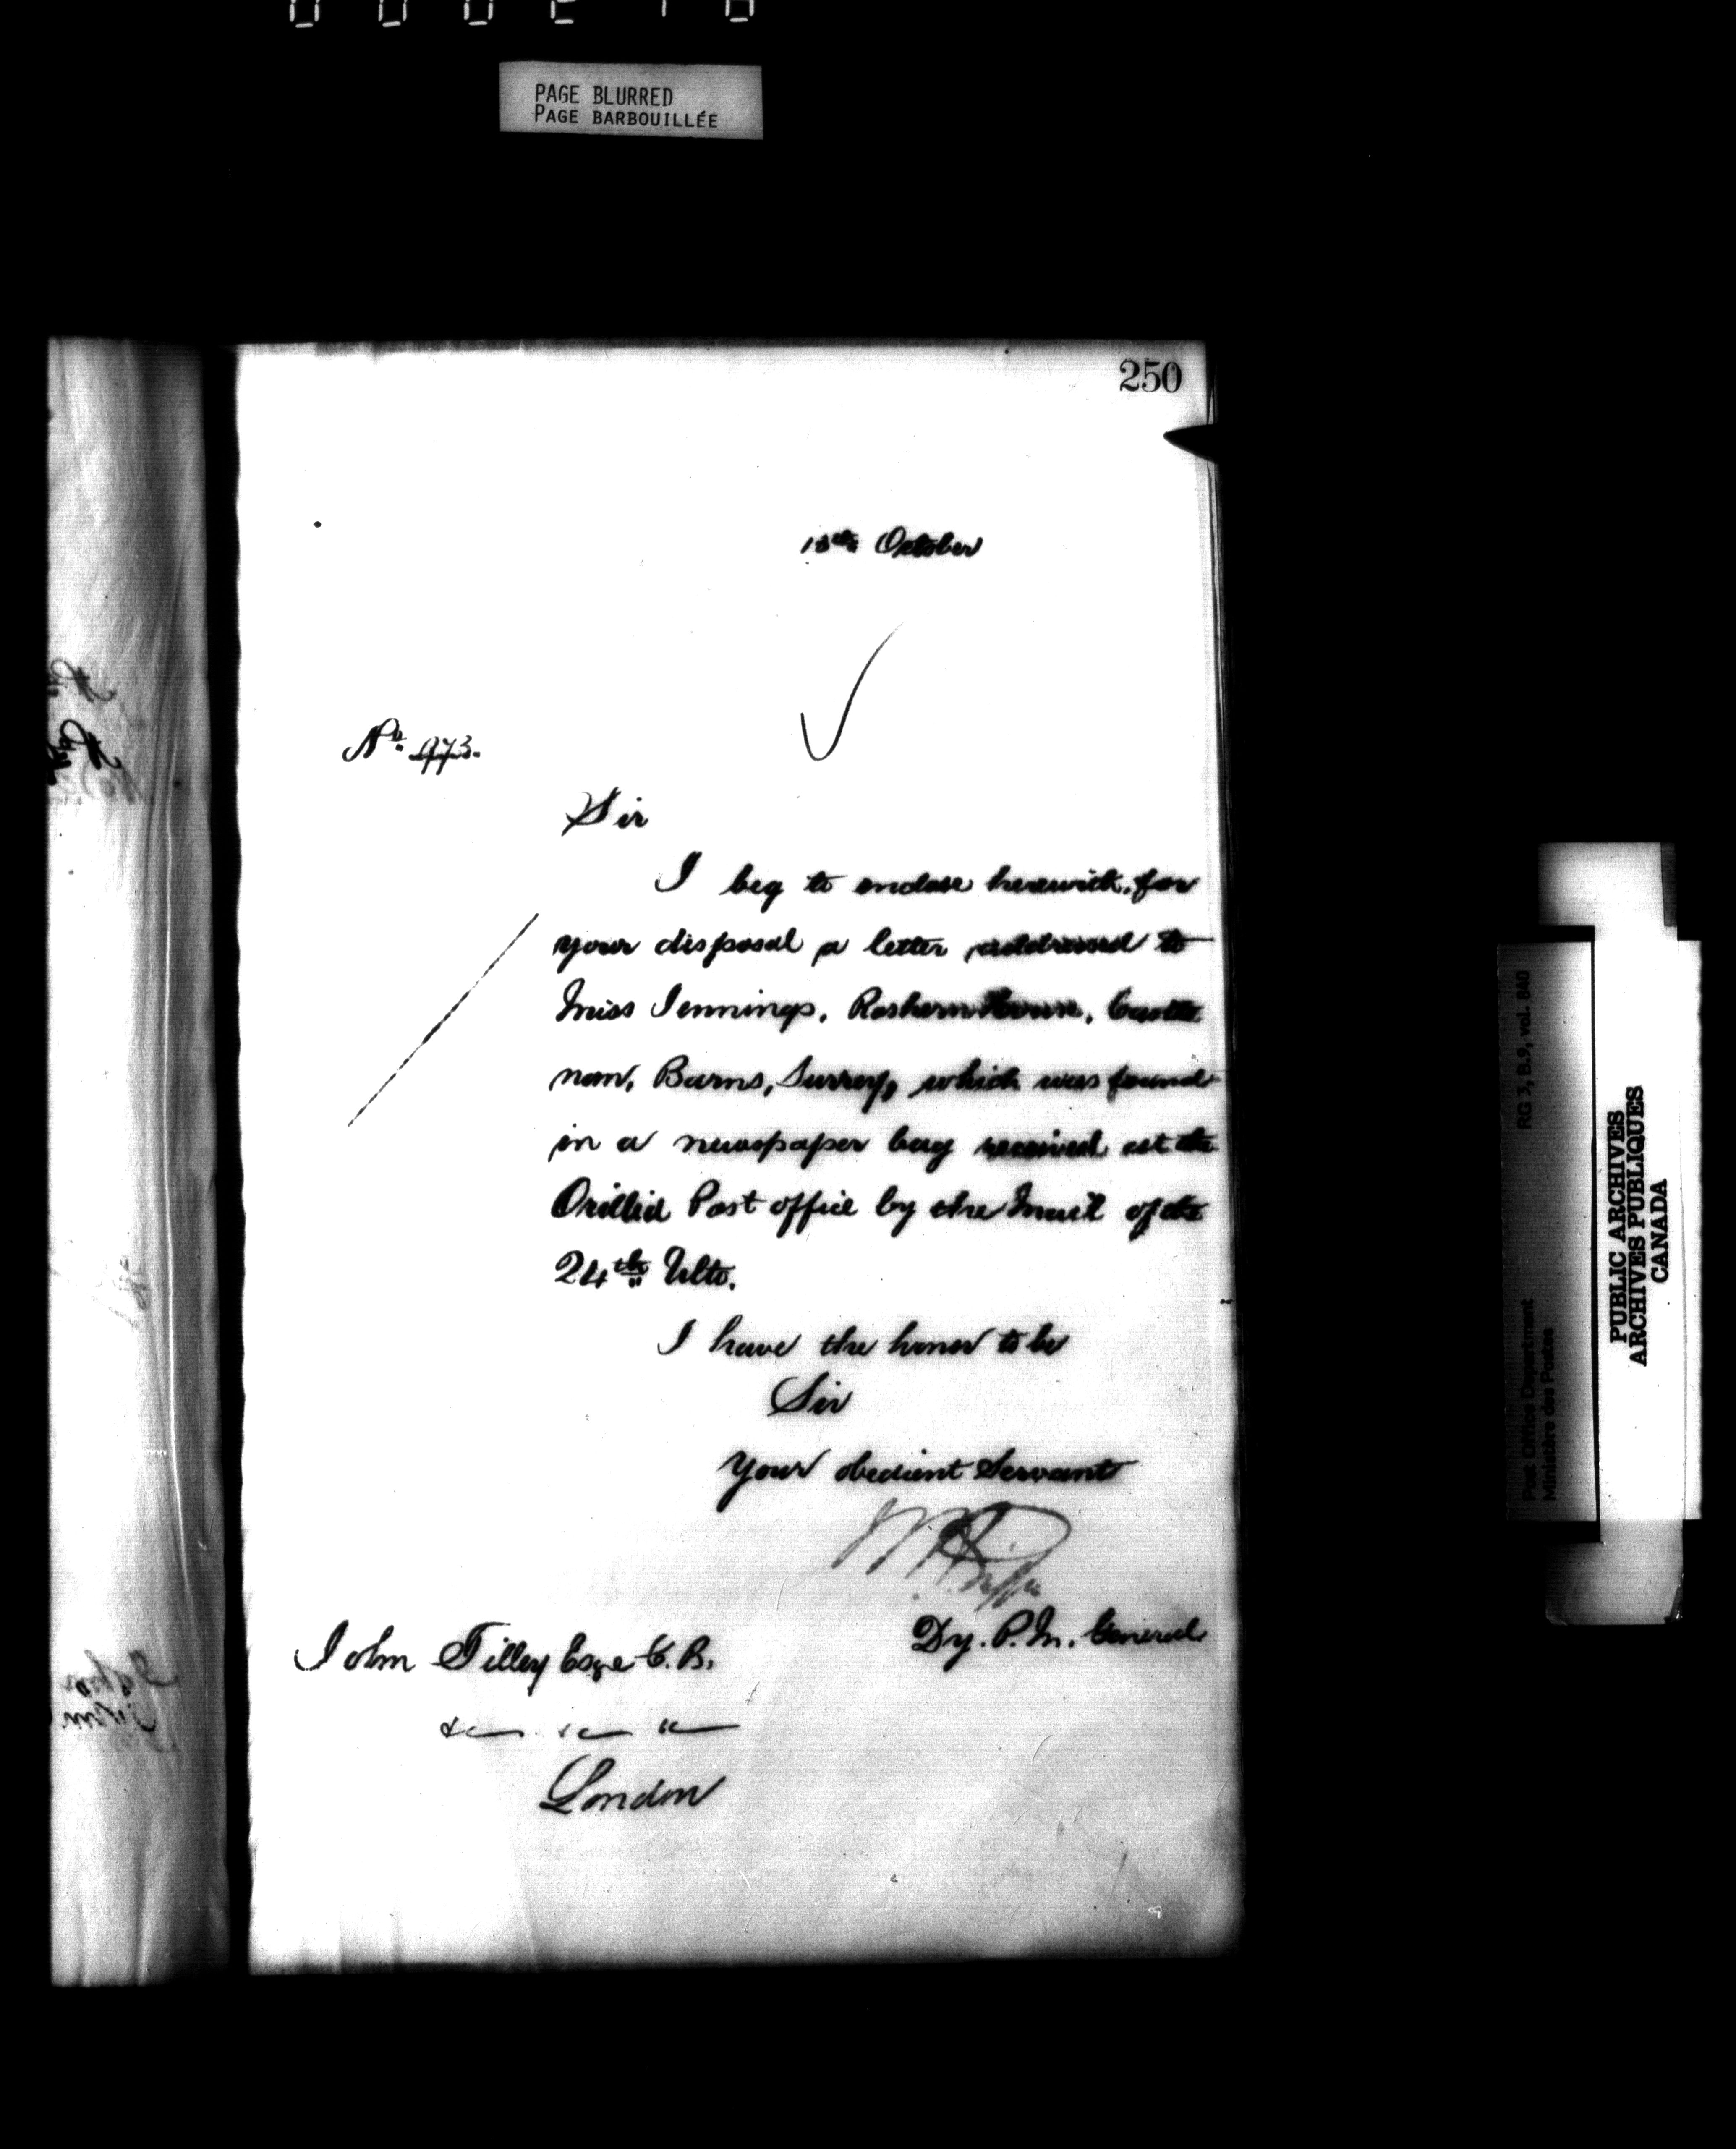 PAGE BLURRED
PAGE BARBOUILLÉE
250
15th October
No. 973.
Sir
I beg to enclose herewith, for
your disposal a letter addressed to
Miss Jennings, House, Castle
nau, Barns, Surrey, which was found
in a newspaper bag received at the
Orillia Post office by the Mail of the
24th Ulto.
I have the honor to be
Sir
Your obedient Servant
Dy. P. M. General
John Tilley Esqe C. B.
&c &c &c
London
RG 3, B.9, vol. 840
Post Office Department
Ministère des Postes
PUBLIC ARCHIVES
ARCHIVES PUBLIQUES
CANADA